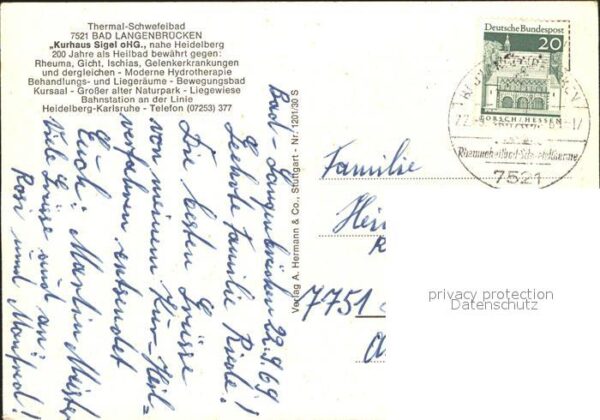 Thermal-Schwefelbad
7521 BAD LANGENBRÜCKEN
„Kurhaus Sigel oHG., nahe Heidelberg
200 Jahre als Heilbad bewährt gegen:
Rheuma, Gicht, Ischias, Gelenkerkrankungen
und dergleichen - Moderne Hydrotherapie
Behandlungs- und Liegeräume - Bewegungsbad
Kursaal - Großer alter Naturpark - Liegewiese
Bahnstation an der Linie
Heidelberg-Karlsruhe - Telefon (07253) 377
Bad-Langenbrücken 22.9.69
Geehrte Familie
Die besten Grüsse
von meinem Kur-Heil=
verfahren entsendet
Euch: Martin Meister
Viele Grüsse sind an:
Rosi und Manfred!
Verlag A. Hermann & Co., Stuttgart - Nr. 1201/30 S
Deutsche Bundespost
20
LORSCH/HESSEN
7521
Familie
7751
privacy protection
Datenschutz